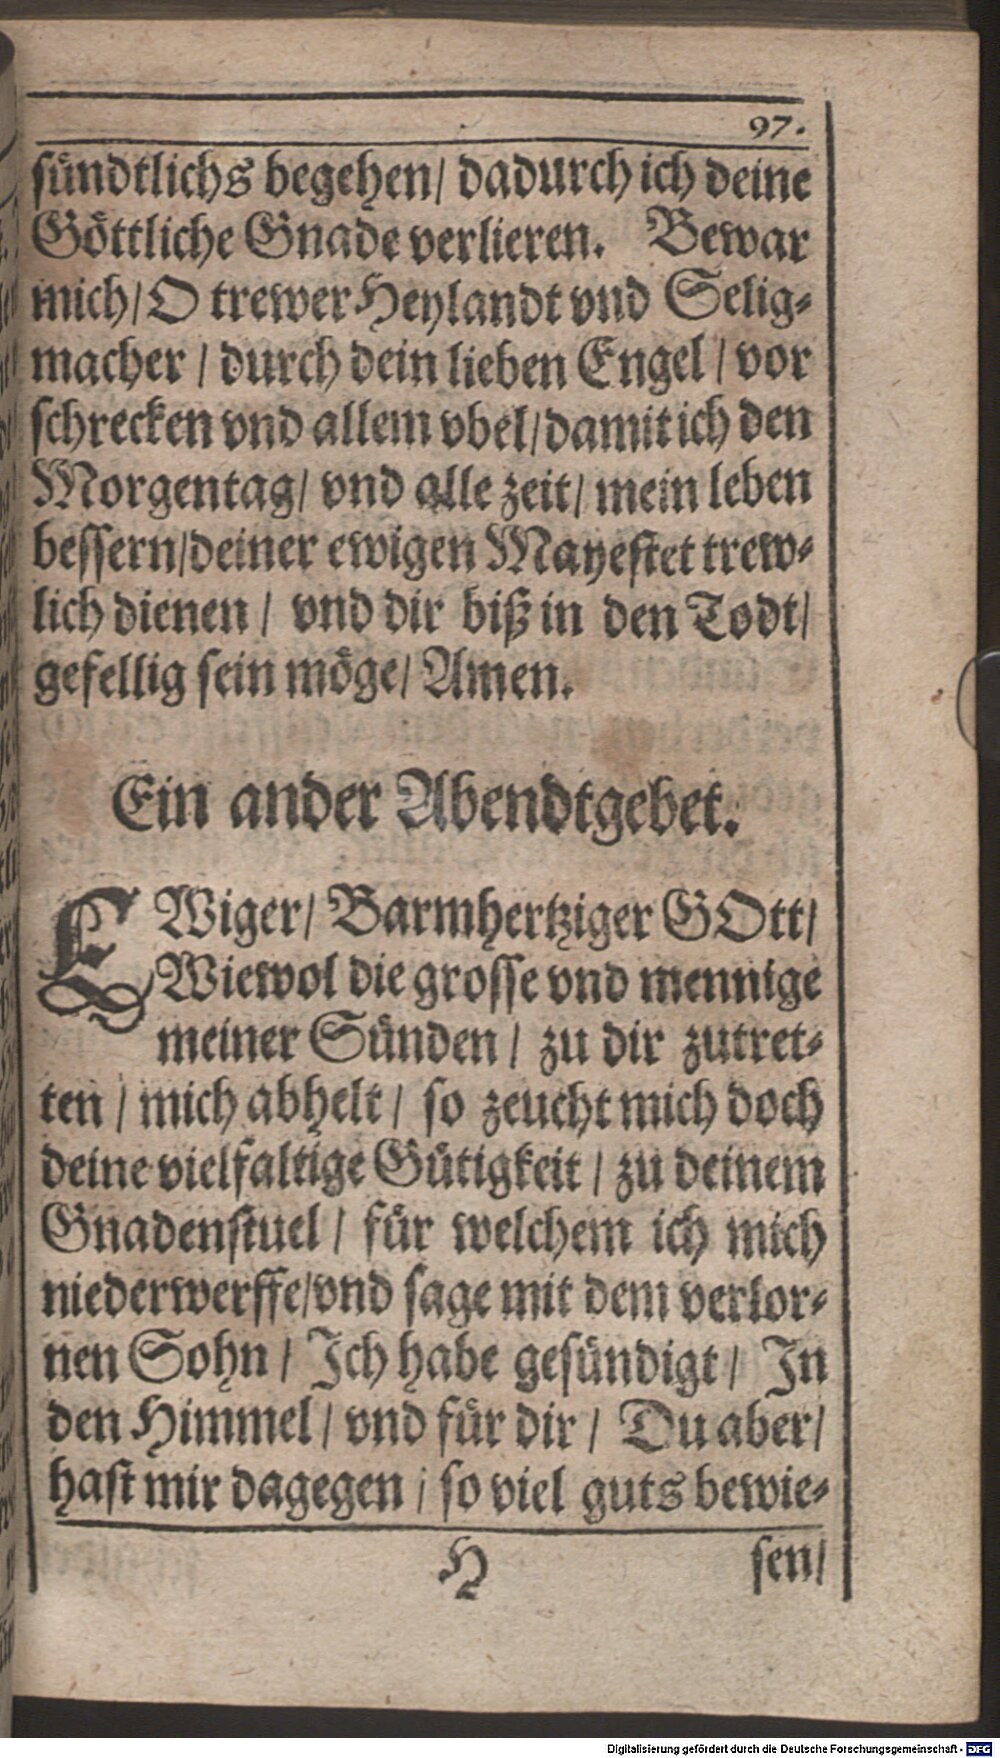 97.
sündtlichs begehen/ dadurch ich deine
Göttliche Gnade verlieren. Bewar
mich/ O trewer Heylandt vnd Selig-
macher / durch dein lieben Engel / vor
schrecken vnd allem vbel/ damit ich den
Morgentag/ vnd alle zeit/ mein leben
bessern/ deiner ewigen Mayestet trew-
lich dienen / vnd dir biß in den Todt/
gefellig sein möge/ Amen.
Ein ander Abendtgebet.
EWiger/ Barmhertziger GOtt/
Wiewol die grosse vnd mennige
meiner Sünden / zu dir zutret-
ten / mich abhelt / so zeucht mich doch
deine vielfaltige Gütigkeit / zu deinem
Gnadenstuel / für welchem ich mich
niederwerffe/ vnd sage mit dem verlor-
nen Sohn / Ich habe gesündigt / In
den Himmel / vnd für dir / Du aber/
hast mir dagegen / so viel guts bewie-
H sen/
Digitalisierung gefördert durch die Deutsche Forschungsgemeinschaft - DFG